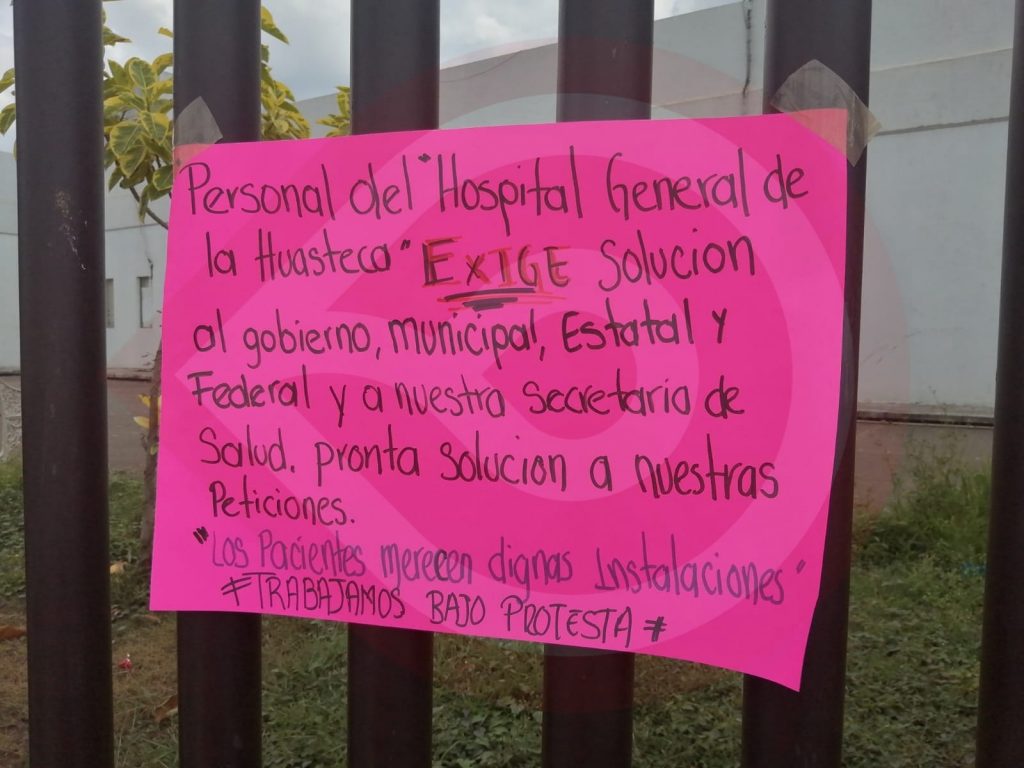 Personal del "Hospital General de
la Huasteca" EXIGE Solucion
al gobierno, municipal, Estatal y
Federal y a nuestra Secretaria de
Salud. pronta solucion a nuestras
Peticiones.
"Los Pacientes merecen dignas Instalaciones"
#TRABAJAMOS BAJO PROTESTA#